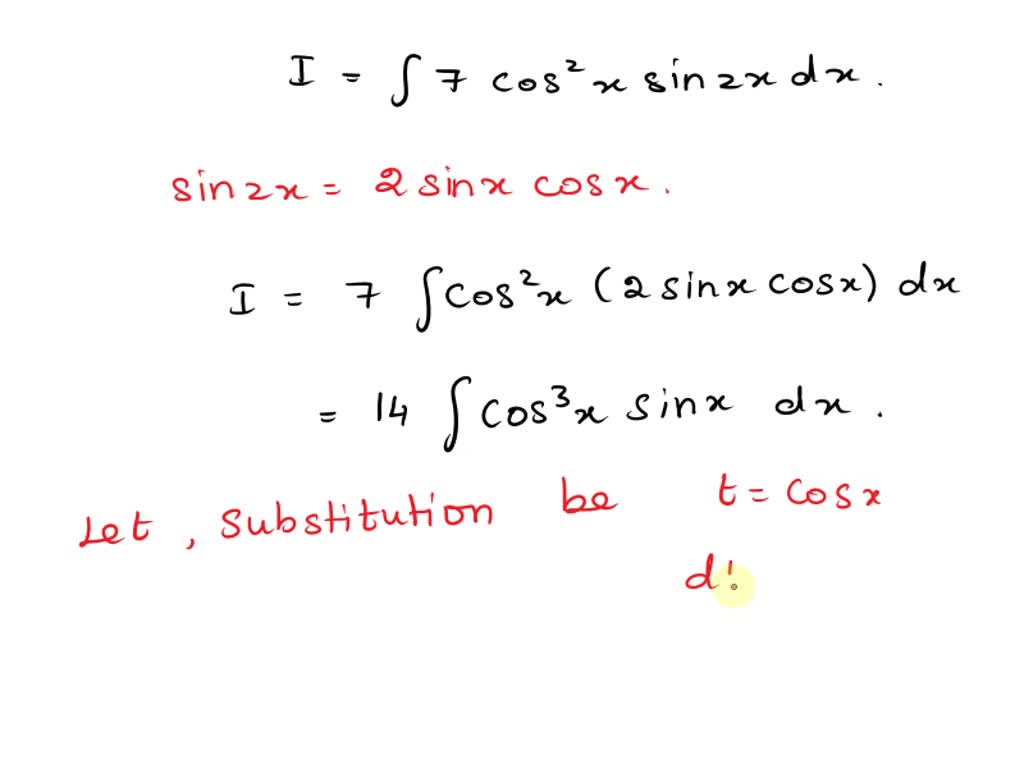 I = ∫ 7 cos²x sin2x dx.
sin2x = 2 sinx cosx.
I = 7 ∫cos²x (2 sinx cosx) dx
= 14 ∫cos³x sinx dx.
Let, substitution be t = cosx
d